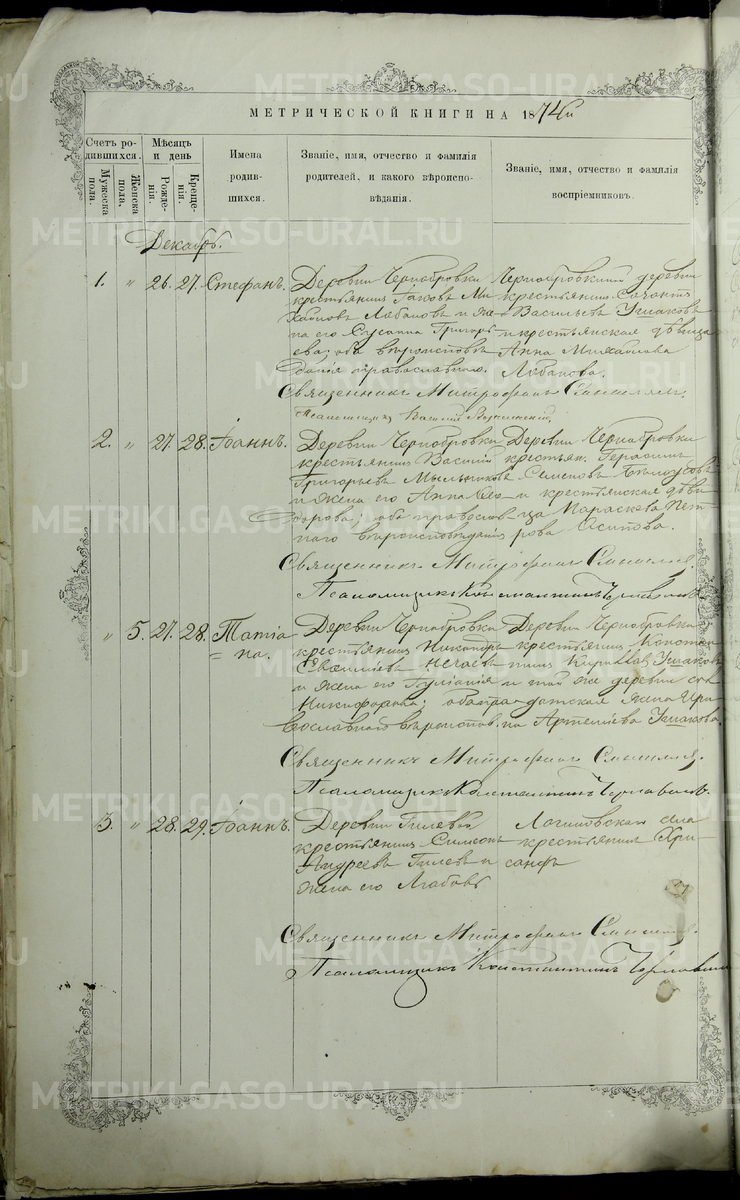 МЕТРИЧЕСКОЙ КНИГИ НА 1874й
Счетъ родившихся.
Мужеска пола.
Женска пола.
Мѣсяцъ и день
Рожденія.
Крещенія.
Имена родившихся.
Званіе, имя, отчество и фамилія родителей, и какого вѣроисповѣданія.
Званіе, имя, отчество и фамилія воспріемниковъ.
Декабрь.
1. " 26. 27. Стефанъ.
Деревни Чернобровки
крестьянинъ Іаковъ Ми
хайловъ Лобановъ и же
на его Сусанна Григорь
ева; оба вѣроисповѣ
данія православнаго.
Чернобровкиной деревни
крестьянинъ
Васильевъ Ушаковъ
и крестьянская дѣвица
Анна Михайлова
Лобанова.
Священникъ Митрофанъ
Псаломщикъ Василій
2. " 27. 28. Іоаннъ.
Деревни Чернобровки
крестьянинъ Василій
Григорьевъ Мыльниковъ
и жена его Анна Ѳео
дорова; оба православ
наго вѣроисповѣданія
Деревни Чернобровки
крестьян. Герасимъ
Семеновъ Бѣлоусовъ
и крестьянская дѣви
ца Параскева Пет
рова Осипова.
Священникъ Митрофанъ
Псаломщикъ Константинъ
" 5. 27. 28. Татіа
на.
Деревни Чернобровки
крестьянинъ Никандръ
Евѳиміевъ Нечаевъ
и жена его Іуліанія
Никифорова; оба пра
вославнаго вѣроиспов.
Деревни Чернобровки
крестьянинъ Констан
тинъ Кирилловъ Ушаковъ
и той же деревни сол
датская жена Ири
на Артеміева Ушакова.
Священникъ Митрофанъ
Псаломщикъ Константинъ
3. " 28. 29. Іоаннъ.
Деревни Гилевой
крестьянинъ Симеонъ
Андреевъ Гилевъ и
жена его Любовь
Логиновскаго села
крестьянинъ Хри
санфъ
Священникъ Митрофанъ
Псаломщикъ Константинъ
METRIKI.GASO-URAL.RU